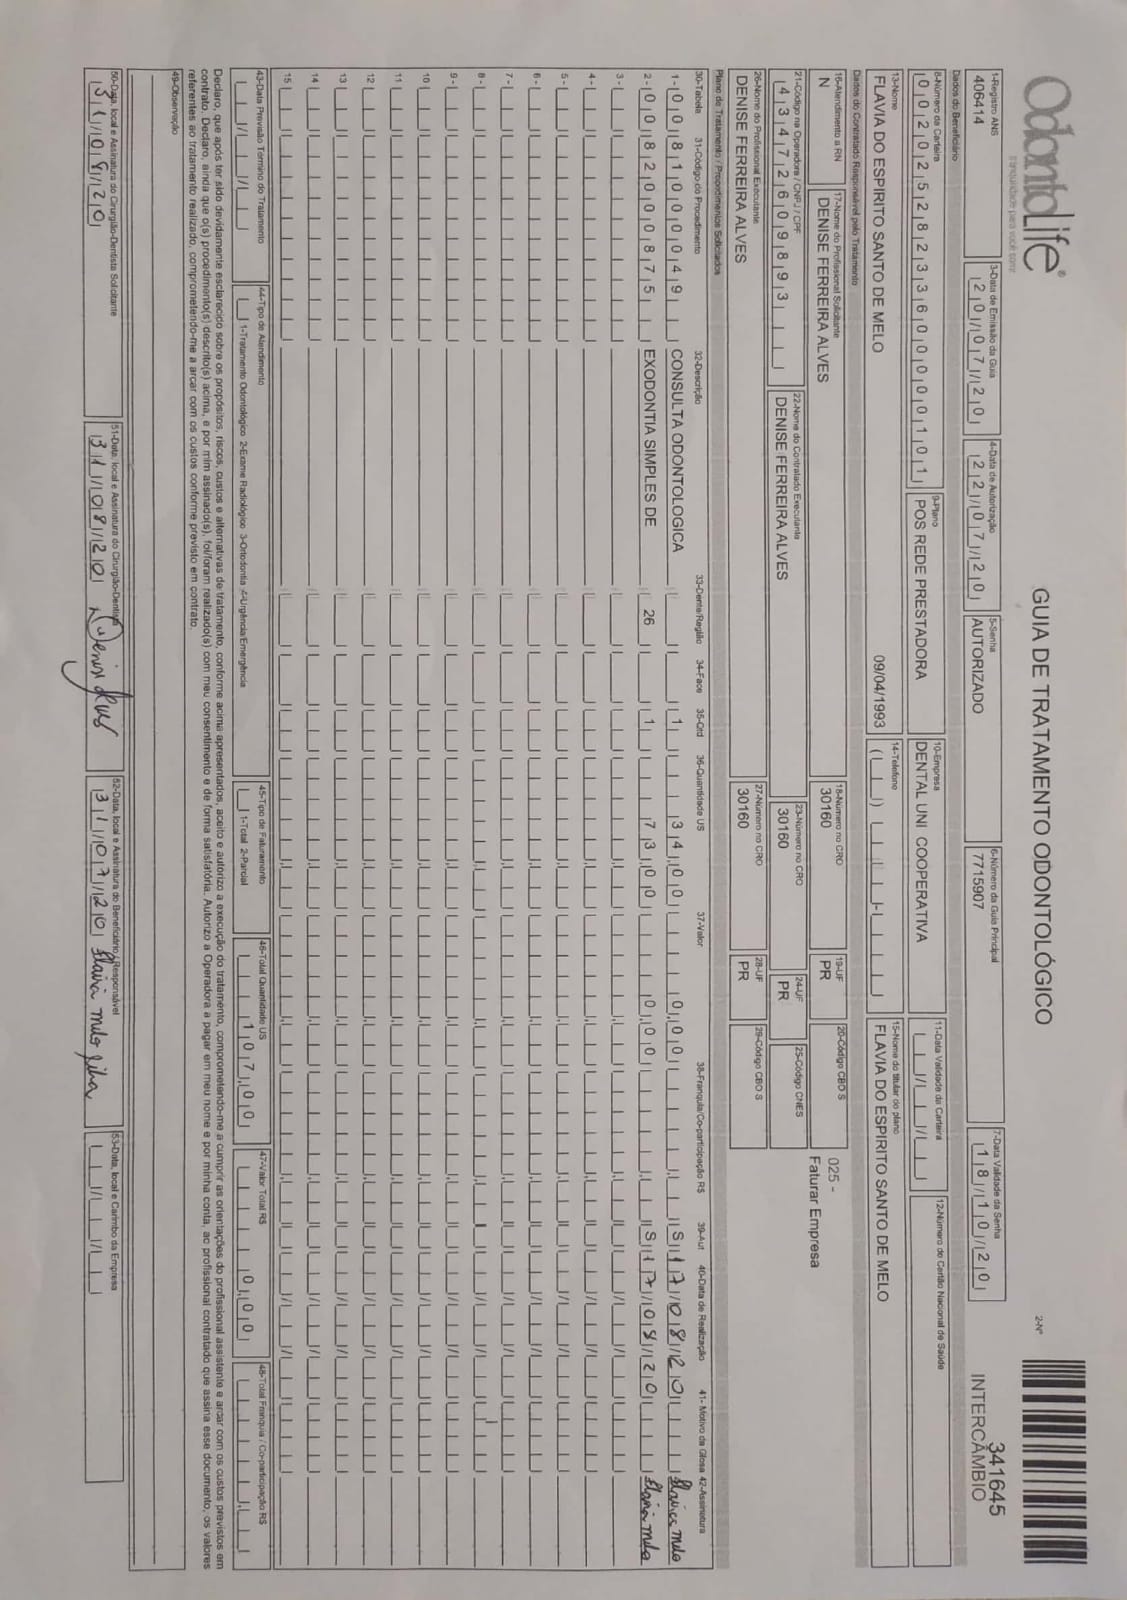 OdontoLife®
tranquilidade para você sorrir
GUIA DE TRATAMENTO ODONTOLÓGICO
2-Nº
341645
INTERCÂMBIO
1-Registro ANS
406414
3-Data de Emissão da Guia
20/07/20
4-Data de Autorização
22/07/20
5-Senha
AUTORIZADO
6-Número da Guia Principal
7715907
7-Data Validade da Senha
18/10/20
Dados do Beneficiário
8-Número da Carteira
00202528233600000101
9-Plano
POS REDE PRESTADORA
10-Empresa
DENTAL UNI COOPERATIVA
11-Data Validade da Carteira
12-Número do Cartão Nacional de Saúde
13-Nome
FLAVIA DO ESPIRITO SANTO DE MELO
09/04/1993
14-Telefone
15-Nome do titular do plano
FLAVIA DO ESPIRITO SANTO DE MELO
Dados do Contratado Responsável pelo Tratamento
16-Atendimento a RN
N
17-Nome do Profissional Solicitante
DENISE FERREIRA ALVES
18-Número no CRO
30160
19-UF
PR
20-Código CBO S
025 -
Faturar Empresa
21-Código na Operadora / CNPJ / CPF
43472609893
22-Nome do Contratado Executante
DENISE FERREIRA ALVES
23-Número no CRO
30160
24-UF
PR
25-Código CNES
26-Nome do Profissional Executante
DENISE FERREIRA ALVES
27-Número no CRO
30160
28-UF
PR
29-Código CBO S
Plano de Tratamento / Procedimentos Solicitados
30-Tabela 31-Código do Procedimento 32-Descrição 33-Dente/Região 34-Face 35-Qtd 36-Quantidade US 37-Valor 38-Franquia/Co-participação R$ 39-Aut 40-Data de Realização 41- Motivo da Glosa 42-Assinatura
1- 00 81000049 CONSULTA ODONTOLOGICA 1 34,00 0,00 S 17/08/20 Flavia Melo
2- 00 82000875 EXODONTIA SIMPLES DE 26 1 73,00 0,00 S 17/08/20 Flavia Melo
3-
4-
5-
6-
7-
8-
9-
10
11
12
13
14
15
43-Data Previsão Término do Tratamento
44-Tipo de Atendimento
1-Tratamento Odontológico 2-Exame Radiológico 3-Ortodontia 4-Urgência/Emergência
45-Tipo de Faturamento
1-Total 2-Parcial
46-Total Quantidade US
107,00
47-Valor Total R$
0,00
48-Total Franquia / Co-participação R$
Declaro, que após ter sido devidamente esclarecido sobre os propósitos, riscos, custos e alternativas de tratamento, conforme acima apresentados, aceito e autorizo a execução do tratamento, comprometendo-me a cumprir as orientações do profissional assistente e arcar com os custos previstos em
contrato. Declaro, ainda que o(s) procedimento(s) descrito(s) acima, e por mim assinado(s), foi/foram realizado(s) com meu consentimento e de forma satisfatória. Autorizo a Operadora a pagar em meu nome e por minha conta, ao profissional contratado que assina esse documento, os valores
referentes ao tratamento realizado, comprometendo-me a arcar com os custos conforme previsto em contrato.
49-Observação
50-Data, local e Assinatura do Cirurgião-Dentista Solicitante
31/08/20
51-Data, local e Assinatura do Cirurgião-Dentista
31/08/20
52-Data, local e Assinatura do Beneficiário / Responsável
31/07/20 Flavia Melo
53-Data, local e Carimbo da Empresa